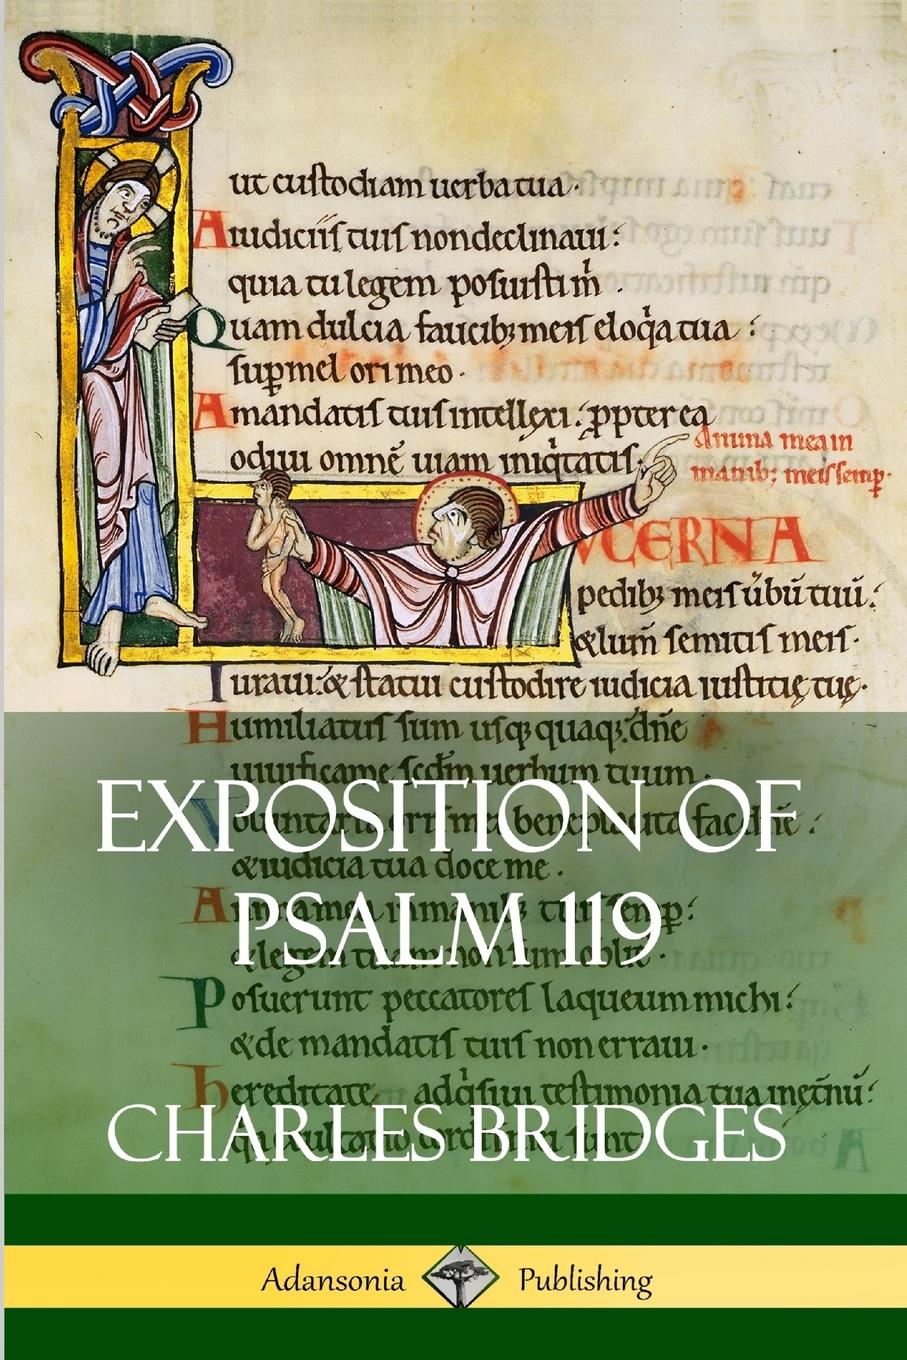 ut custodiam uerba tua·
A iudiciis tuis non declinaui:
quia tu legem posuisti m̄·
Quam dulcia faucibȝ meis eloq̄a tua:
sup̱ mel ori meo·
A mandatis tuis intellexi: p̱pterea
odiui omnē uiam iniq̄tatis·
Anima mea in
manibȝ meis semp̱·
LUCERNA
pedibȝ meis ūbū tuū:
& lum̄ semitis meis·
Iuraui: & statui custodire iudicia iustitię tuę·
Humiliatus sum usq̨ quaq̨: dn̄e
uiuifica me scd̄m uerbum tuum·
Voluntaria oris mei beneplacita fac dn̄e:
EXPOSITION OF
& iudicia tua doce me·
Anima mea in manibȝ tuis semp̱:
PSALM 119
& legem tuam non sum oblit·
Posuerunt peccatores laqueum michi:
& de mandatis tuis non erraui·
hereditate adq̄siui testimonia tua inęt̄nū:
CHARLES BRIDGES
Adansonia Publishing